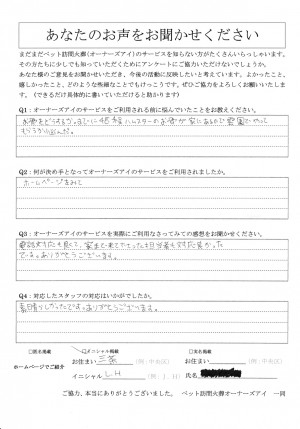 あなたのお声をお聞かせください
まだまだペット訪問火葬(オーナーズアイ)のサービスを知らない方がたくさんいらっしゃいます。
その方たちに少しでも知っていただくためにアンケートにご協力いただけないでしょうか。
あなた様のご意見をお聞かせいただき、今後の活動に反映したいと考えています。よかったこと、
嬉しかったこと、どのような些細なことでもけっこうです。ぜひご協力をよろしくお願いいたしま
す。（できるだけ具体的に書いていただけると助かります）
Q1：オーナーズアイのサービスをご利用される前に悩んでいたことをお教えください。
お骨をどうするか。までに
ハムスターのお骨が家にあるので霊園でやって
もらうか悩んだ。
Q2：何が決め手となってオーナーズアイのサービスをご利用されましたか。
ホームページをみて
Q3：オーナーズアイのサービスを実際にご利用なさってみての感想をお聞かせください。
電話対応も良くて、家まで来て下さった担当者も対応良かった
です。ありがとうございます。
Q4：対応したスタッフの対応はいかがでしたか。
素晴らしかったです。ありがとうございます。
□匿名掲載 ☑イニシャル掲載 □実名掲載
お住まい 三条 (例：中央区) お住まい (例：中央区)
ホームページでご紹介
イニシャル L H (例：I．H) 氏名
ご協力、本当にありがとうございました。 ペット訪問火葬オーナーズアイ 一同